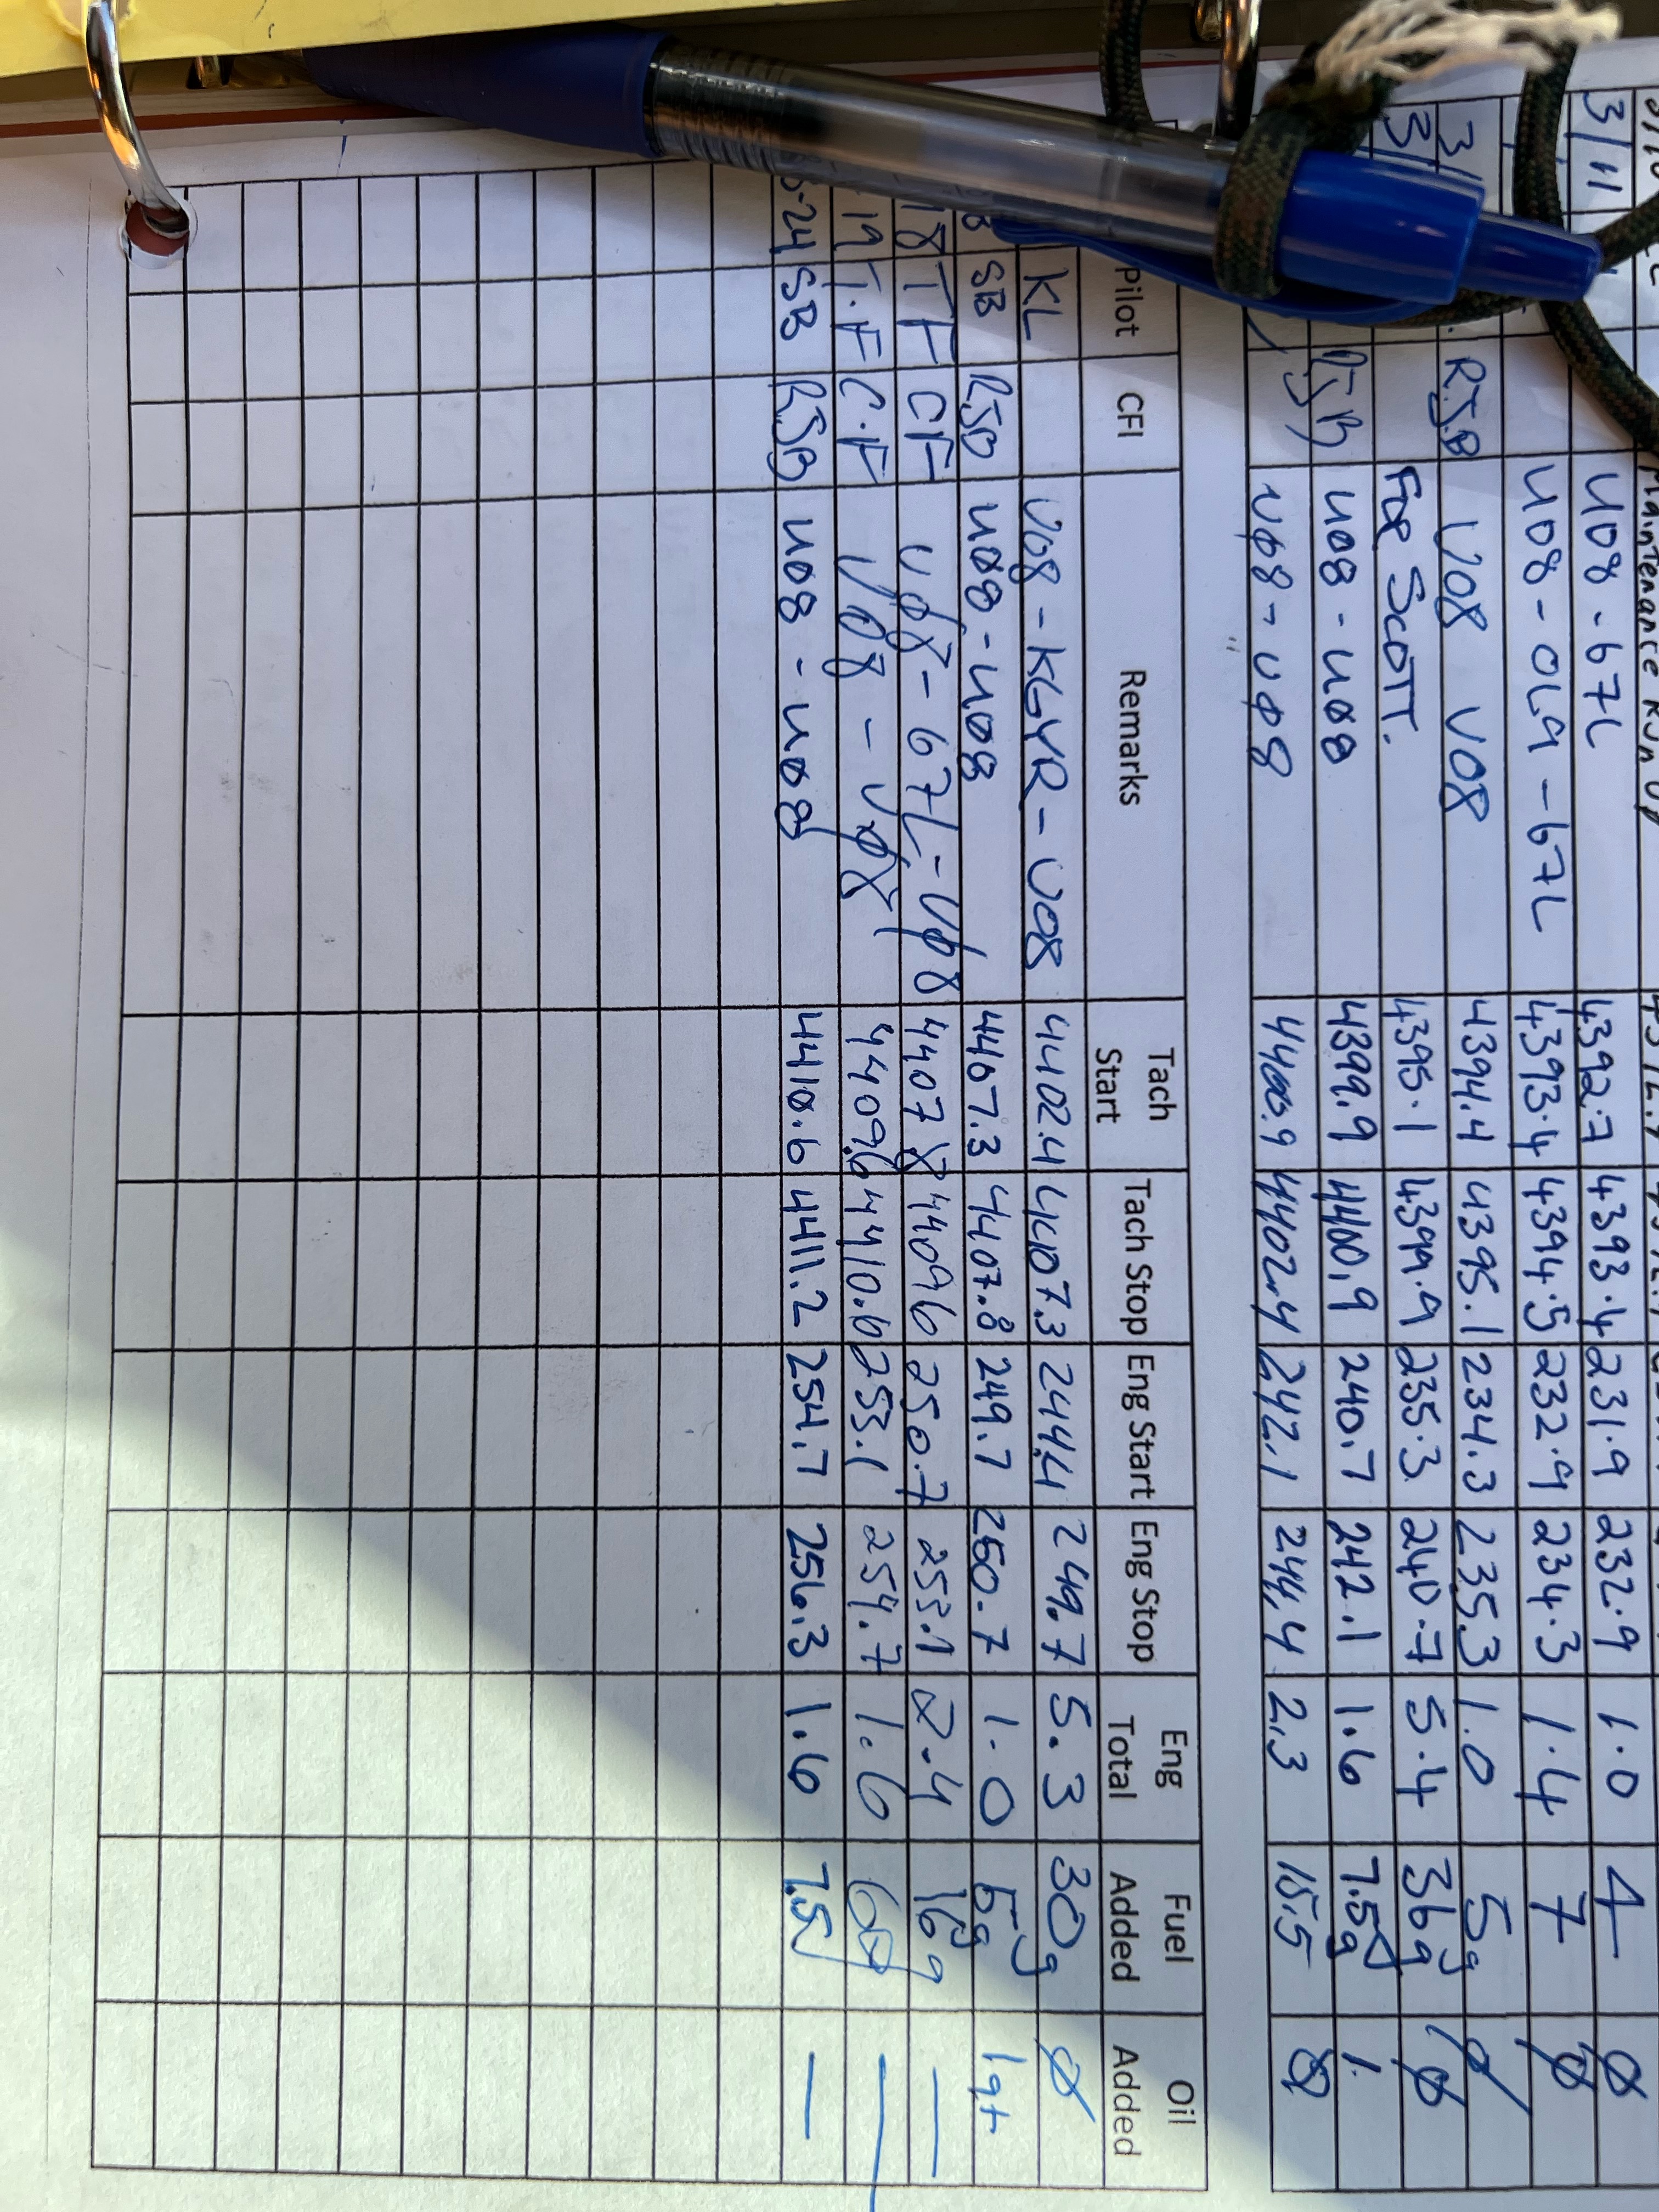 Maintenance Run Up
3/11 U08-67L 4392.7 4393.4 231.9 232.9 1.0 4 Ø
U08-0L9-67L 4393.4 4394.5 232.9 234.3 1.4 7 Ø
3/ RJB U08 U08 4394.4 4395.1 234.3 235.3 1.0 5g Ø
3/ FOR SCOTT. 4395.1 4399.9 235.3 240.7 5.4 36g Ø
RJB U08-U08 4399.9 4400.9 240.7 242.1 1.6 7.5g 1.
UØ8-UØ8 4400.9 4402.4 242.1 244.4 2.3 15.5 Ø
Pilot CFI Remarks Tach Start Tach Stop Eng Start Eng Stop Eng Total Fuel Added Oil Added
KL U08-KGYR-U08 4402.4 4407.3 244.4 249.7 5.3 30g Ø
SB RJB U08-U08 4407.3 4407.8 249.7 250.7 1.0 5g 1qt
18 TF CF UØ8-67L-UØ8 4407.8 4409.6 250.7 253.1 2.4 16g —
19 T.F C.F UØ8-UØ8 4409.6 4410.6 253.1 254.7 1.6 —
-24 SB RJB U08-U08 4410.6 4411.2 254.7 256.3 1.6 7.5 —